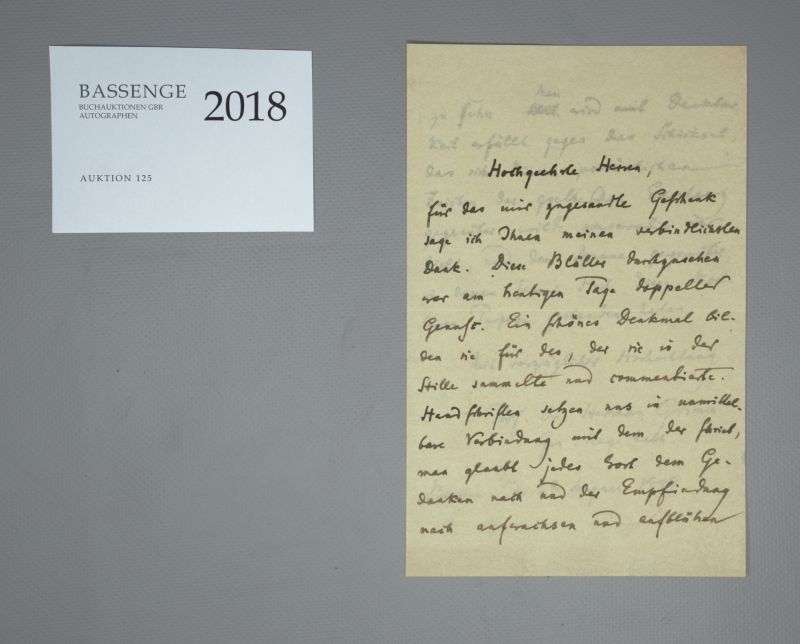 BASSENGE
BUCHAUKTIONEN GBR
AUTOGRAPHEN
2018
AUKTION 125
Hochgeehrte Herren,
für das mir zugesandte Geschenk
sage ich Ihnen meinen verbindlichsten
Dank. Diese Blätter durchzusehen
war am heutigen Tage doppelter
Genuss. Ein schönes Denkmal bil-
den sie für den, der sie in der
Stille sammelte und commentierte.
Handschriften setzen uns in unmittel-
bare Verbindung mit dem der schrieb,
man glaubt jedes Wort dem Ge-
danken nach und der Empfindung
nach aufwachsen und aufblühen